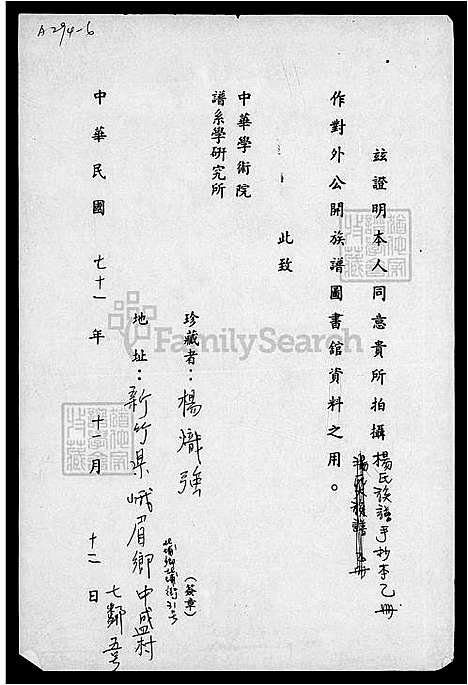 A294-6
茲證明本人同意貴所拍攝楊氏族譜手抄本乙冊
楊氏族譜乙冊
作對外公開族譜圖書館資料之用。
此致
中華學術院
譜系學研究所
珍藏者：楊熾強
(簽章)
地址：新竹県峨眉鄉中盛村
七鄰五号
埔鄉埔街31号
中華民國 七十一 年 十一 月 十二 日
FamilySearch